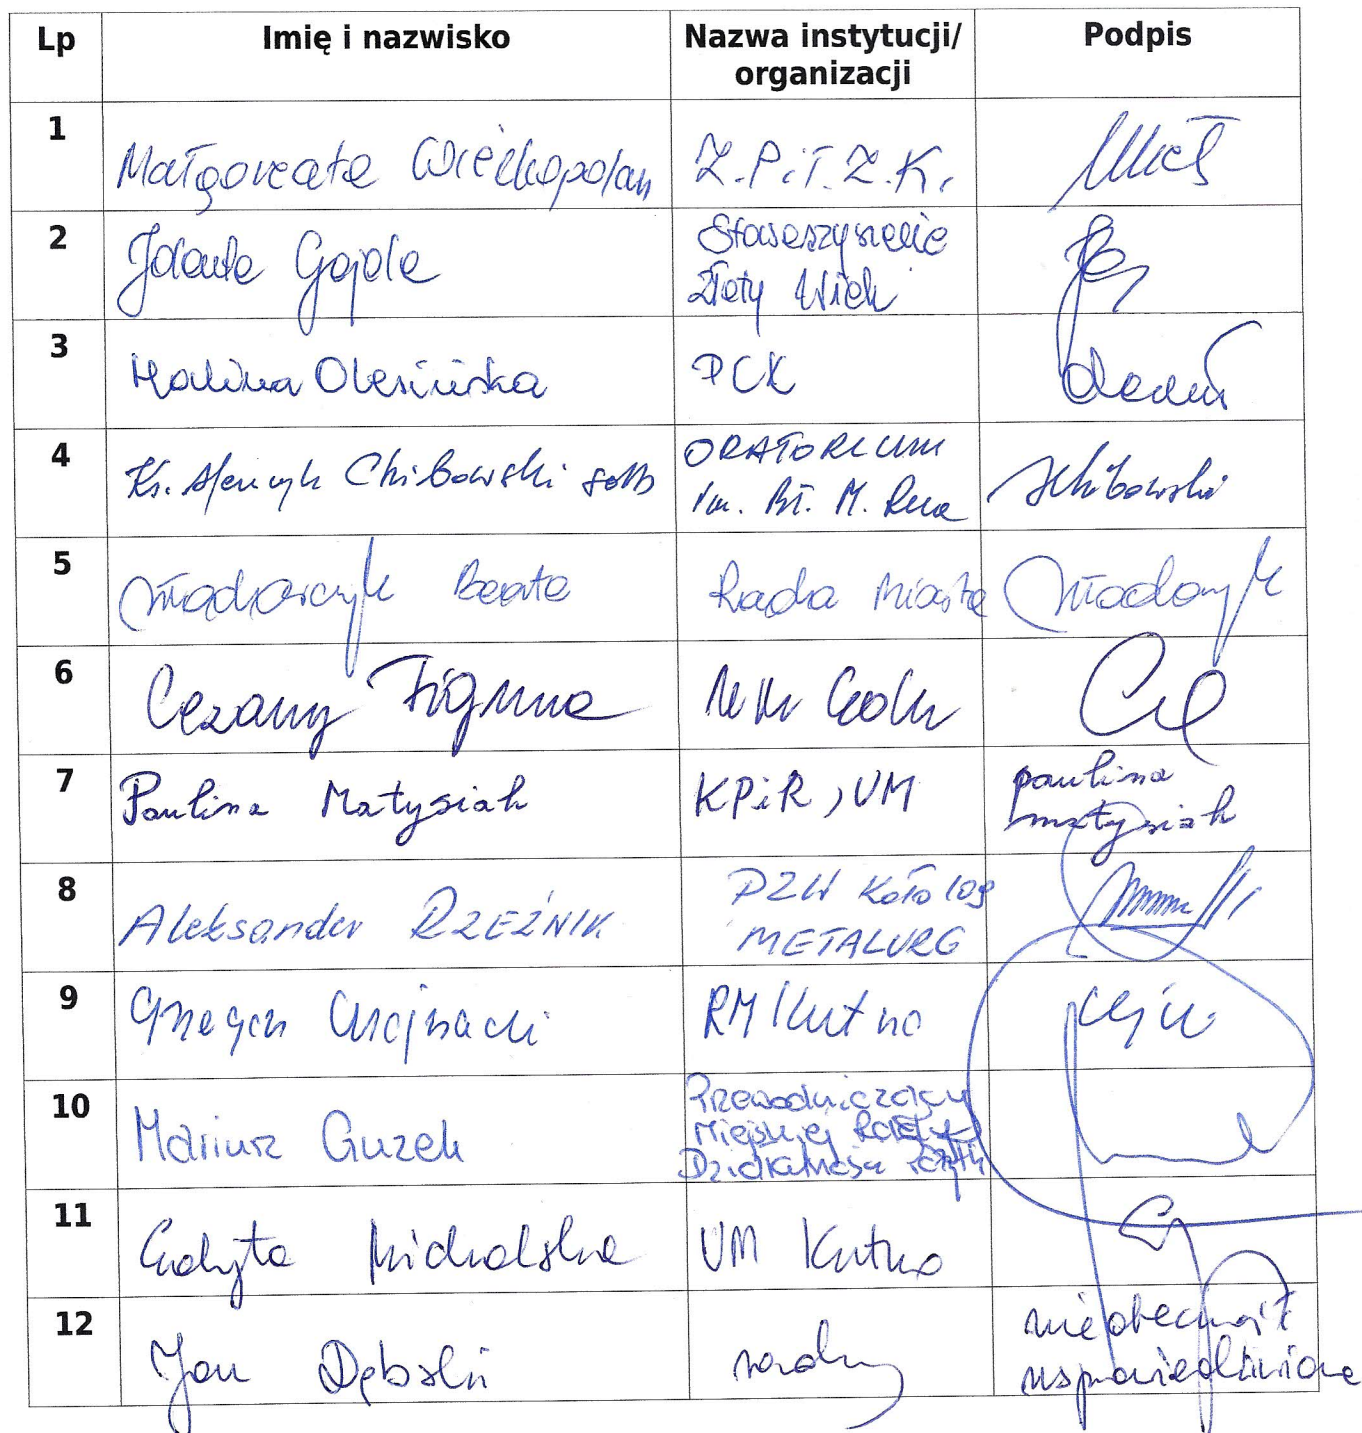 Lp Imię i nazwisko Nazwa instytucji/ organizacji Podpis
1 Małgorzata Wielkopolan Z.P.i.T.Z.K.
2 Jolanta Gajda Stowarzyszenie
Złoty Wiek
3 Halina Olesińska PCK
4 Ks. Henryk Chibowski SDB ORATORIUM
im. Bł. M. Rua Chibowski
5 Włodarczyk Beata Rada Miasta Włodarczyk
6 Cezary
7 Paulina Matysiak KPiR, UM paulina
matysiak
8 Aleksander RZEŹNIK PZW Koło 109
METALURG
9 Grzegorz Chojnacki RM Kutno
10 Mariusz Guzek Przewodniczący
Miejskiej Rady
Działalności
11 Edyta Michalska UM Kutno
12 Jan Dębski radny nieobecność
usprawiedliwiona